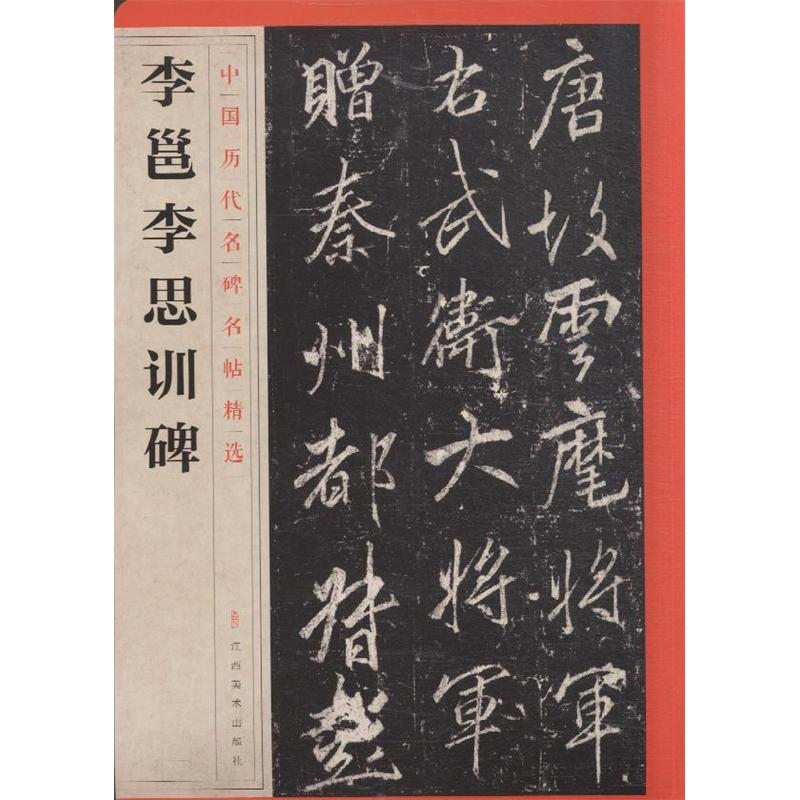 李邕李思训碑
中国历代名碑名帖精选
江西美术出版社
唐故雲麾將軍
右武衛大將軍
贈秦州都督